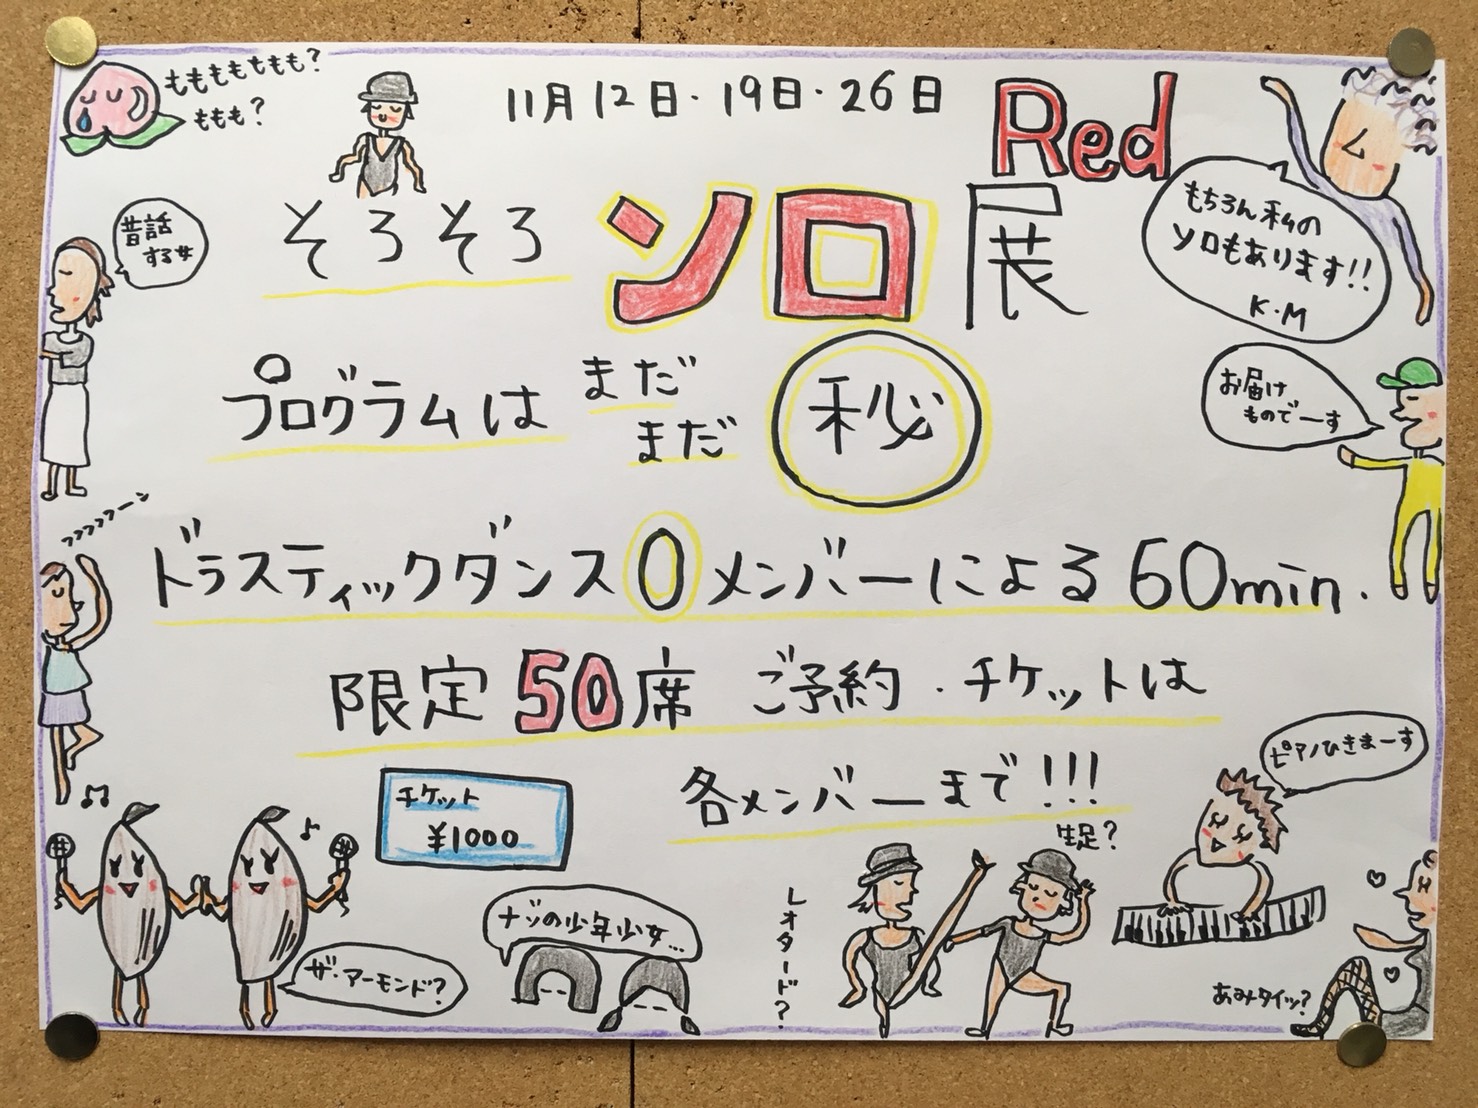 ももももももも?
ももも?
11月12日・19日・26日
Red
そろそろソロ展
昔話
する女
もちろん私の
ソロもあります!!
K・M
プログラムは まだ
まだ 秘
お届け
ものでーす
フフフフフーン
ドラスティックダンスOメンバーによる60min.
限定50席 ご予約・チケットは
各メンバーまで!!!
チケット
¥1000
ピアノひきまーす
生足?
レオタード?
ナゾの少年少女…
ザ・アーモンド?
あみタイツ?